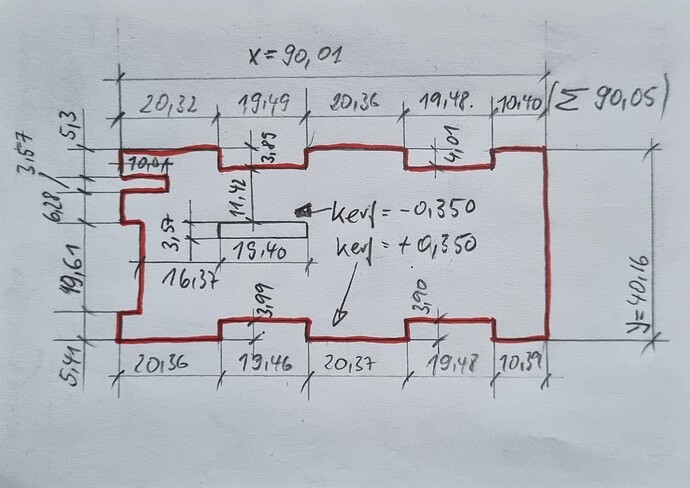 x = 90,01
20,32 19,49 20,36 19,48. 10,40 (Σ 90,05)
5,3
3,57
10,01
3,89
4,01
6,28
11,42
kerf = -0,350
3,57
kerf = + 0,350
19,40
16,37
19,61
3,99
3,90
y = 40,16
5,41
20,36 19,46 20,37 19,48 10,39